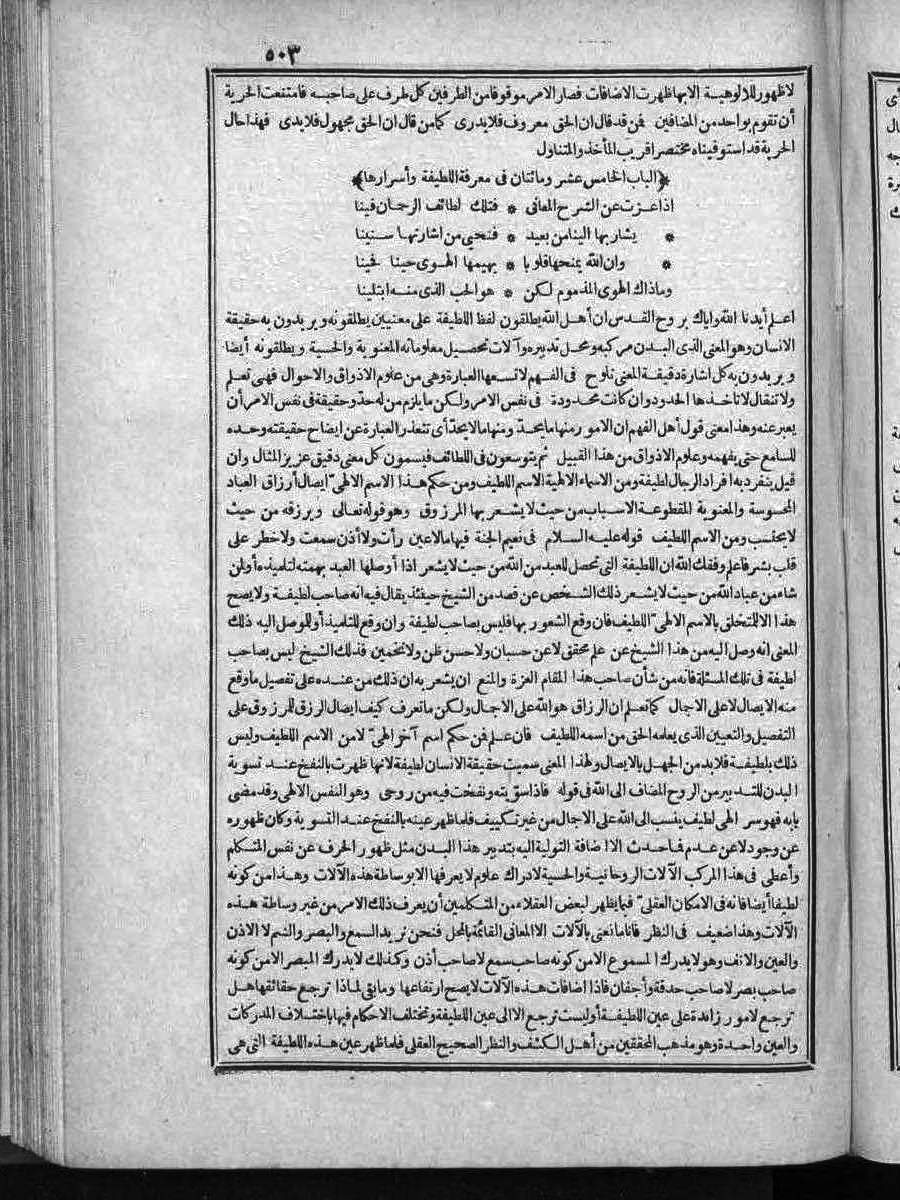 ٥٠٣
لا ظهور للالوهية الا بها ظهرت الاضافات فصار الامر موقوفا من الطرفين كل طرف على صاحبه فامتنعت الحرية
أن تقوم بواحد من المضافين فمن قد قال ان الحق معروف فلا يدرى كما من قال ان الحق مجهول فلا يدى فهذا حال
الحرية قد استوفيناه مختصرا قريب المأخذ والمتناول
﴿الباب الخامس عشر ومائتان فى معرفة اللطيفة وأسرارها﴾
اذا عزت عن الشرح المعانى * فتلك لطائف الرحمان فينا
* يشار بها الينا من بعيد * فنحيى من اشارتها سنينا
* وان الله يمنحها قلوبا * يهيمها الهوى حينا فحينا
وماذاك الهوى المذموم لكن * هو الحب الذى منه ابتلينا
اعلم أيدنا الله واياك بروح القدس ان أهل الله يطلقون لفظ اللطيفة على معنيين يطلقونه ويريدون به حقيقة
الانسان وهو المعنى الذى البدن مركبه ومحل تدبيره وآلات تحصيل معلوماته المعنوية والحسية ويطلقونه أيضا
ويريدون به كل اشارة دقيقة المعنى تلوح فى الفهم لا تسعها العبارة وهى من علوم الاذواق والاحوال فهى تعلم
ولا تنقال لا تأخذها الحدود وان كانت محدودة فى نفس الامر ولكن ما يلزم من له حد وحقيقة فى نفس الامر أن
يعبر عنه وهذا معنى قول أهل الفهم ان الامور منها ما يحد ومنها ما لا يحد أى تتعذر العبارة عن ايضاح حقيقته وحده
للسامع حتى يفهمه وعلوم الاذواق من هذا القبيل ثم يتوسعون فى اللطائف فيسمون كل معنى دقيق عزيز المثال وان
قيل ينفرد به افراد الرجال لطيفة ومن الاسماء الالهية الاسم اللطيف ومن حكم هذا الاسم الالهى ايصال أرزاق العباد
المحسوسة والمعنوية المقطوعة الاسباب من حيث لا يشعر بها المرزوق وهو قوله تعالى ويرزقه من حيث
لا يحتسب ومن الاسم اللطيف قوله عليه السلام فى نعيم الجنة فيها ما لا عين رأت ولا أذن سمعت ولا خطر على
قلب بشر فاعلم وفقك الله ان اللطيفة التى تحصل للعبد من الله من حيث لا يشعر اذا أوصلها العبد بهمته لتلميذه أو لمن
شاء من عباد الله من حيث لا يشعر ذلك الشخص عن قصد من الشيخ حينئذ يقال فيه انه صاحب لطيفة ولا يصح
هذا الا للمتخلق بالاسم الالهى اللطيف فان وقع الشعور بها فليس بصاحب لطيفة وان وقع للتلميذ أو للموصل اليه ذلك
المعنى انه وصل اليه من هذا الشيخ عن علم محقق لا عن حسبان ولا حسن ظن ولا تخمين فذلك الشيخ ليس بصاحب
لطيفة فى تلك المسئلة فانه من شأن صاحب هذا المقام العزة والمنع ان يشعر به ان ذلك من عنده على تفصيل ما وقع
منه الايصال لا على الاجمال كما تعلم ان الرزاق هو الله على الاجمال ولكن ما تعرف كيف ايصال الرزق للمرزوق على
التفصيل والتعيين الذى يعلمه الحق من اسمه اللطيف فان علم فمن حكم اسم آخر الهى لا من الاسم اللطيف وليس
ذلك بلطيفة فلا بد من الجهل بالايصال ولهذا المعنى سميت حقيقة الانسان لطيفة لانها ظهرت بالنفخ عند تسوية
البدن للتدبير من الروح المضاف الى الله فى قوله فاذا سوّيته ونفخت فيه من روحى وهو النفس الالهى وقد مضى
بابه فهو سر الهى لطيف ينسب الى الله على الاجمال من غير تكييف فلما ظهر عينه بالنفخ عند التسوية وكان ظهوره
عن وجود لا عن عدم فما حدث الا اضافة التولية اليه بتدبير هذا البدن مثل ظهور الحرف عن نفس المتكلم
وأعطى فى هذا المركب الآلات الروحانية والحسية لادراك علوم لا يعرفها الا بوساطة هذه الآلات وهذا من كونه
لطيفا أيضا فانه فى الامكان العقلى فيما يظهر لبعض العقلاء من المتكلمين أن يعرف ذلك الامر من غير وساطة هذه
الآلات وهذا ضعيف فى النظر فانا ما نعنى بالآلات الا المعانى القائمة بالمحل فنحن نريد السمع والبصر والشم لا الاذن
والعين والانف وهو لا يدرك المسموع الا من كونه صاحب سمع لا صاحب أذن وكذلك لا يدرك المبصر الا من كونه
صاحب بصر لا صاحب حدقة وأجفان فاذا اضافات هذه الآلات لا يصح ارتفاعها وما بقى لماذا ترجع حقائقها هل
ترجع لامور زائدة على عين اللطيفة أو ليست ترجع الا الى عين اللطيفة وتختلف الاحكام فيها باختلاف المدركات
والعين واحدة وهو مذهب المحققين من أهل الكشف والنظر الصحيح العقلى فلما ظهر عين هذه اللطيفة التى هى